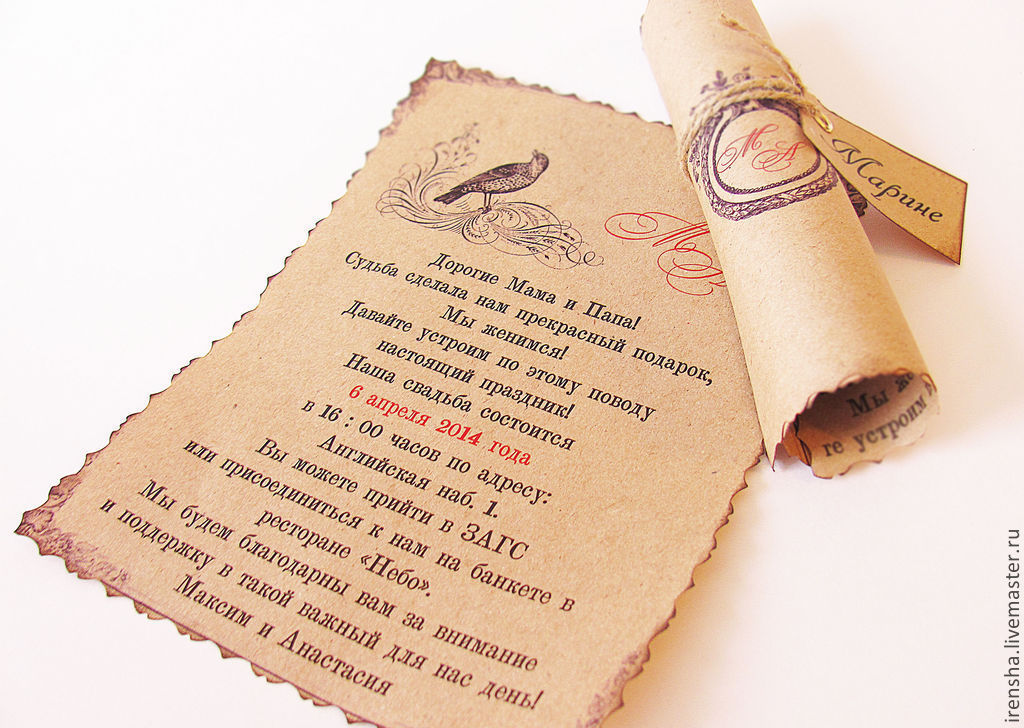 М
Дорогие Мама и Папа!
Судьба сделала нам прекрасный подарок,
Мы женимся!
Давайте устроим по этому поводу
настоящий праздник!
Наша свадьба состоится
6 апреля 2014 года
в 16 : 00 часов по адресу:
Английская наб. 1.
Вы можете прийти в ЗАГС
или присоединиться к нам на банкете в
ресторане «Небо».
Мы будем благодарны вам за внимание
и поддержку в такой важный для нас день!
Максим и Анастасия
М А
Марине
Мы
устроим
irensha.livemaster.ru